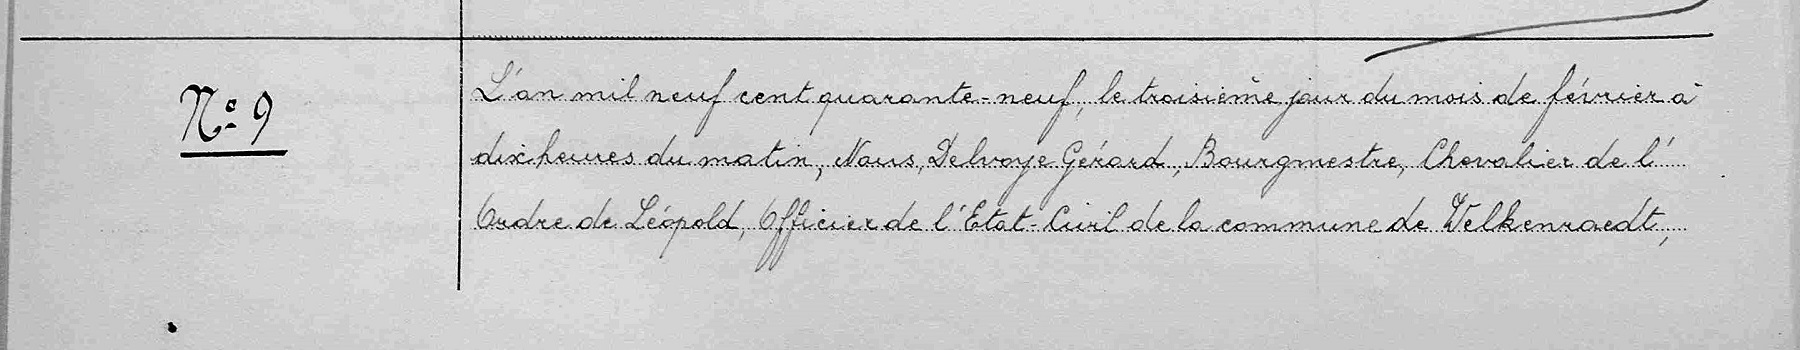 N° 9
L'an mil neuf cent quarante-neuf, le troisième jour du mois de février à
dix heures du matin, Nous, Delvoye Gérard, Bourgmestre, Chevalier de l'
Ordre de Léopold, Officier de l'Etat-Civil de la commune de Welkenraedt,